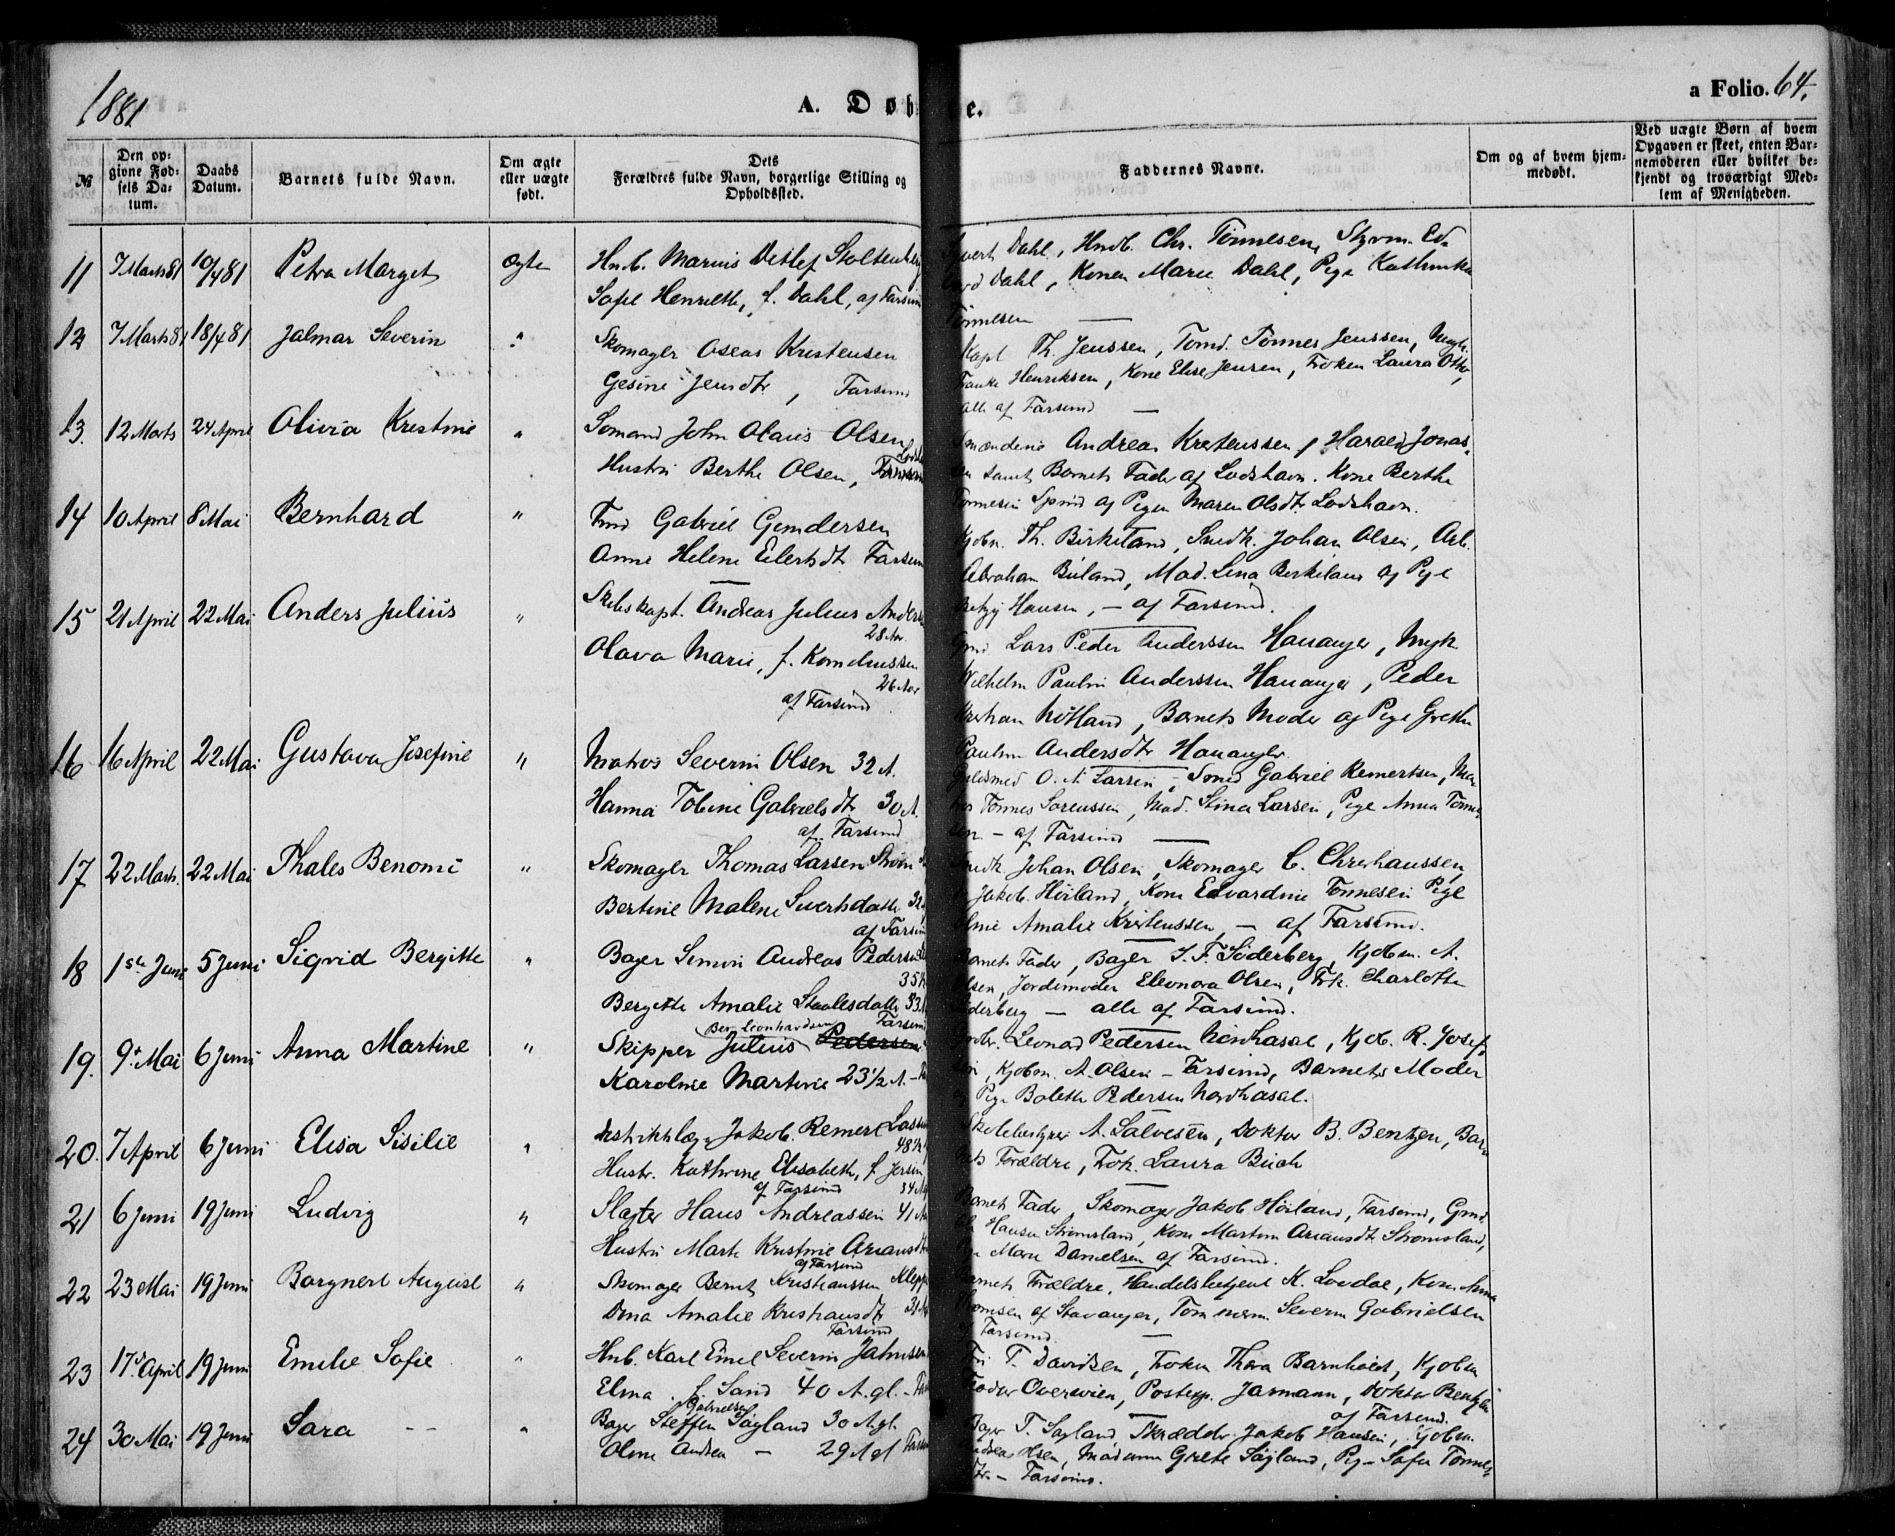 1881
A. Døb
e.
a Folio. 64.
№
Den op-
givne Fød-
sels Da-
tum.
Daabs
Datum.
Barnets fulde Navn.
Om ægte
eller uægte
født.
Dets
Forældres fulde Navn, borgerlige Stilling og
Opholdssted.
Faddernes Navne.
Om og af hvem hjem-
medøbt.
Ved uægte Børn af hvem
Opgaven er skeet, enten Bar-
nemoderen eller hvilket be-
kjendt og troværdigt Med-
lem af Menigheden.
11 7 Marts 81 10/4 81 Petra Marget Ægte Hnb. Marius Detlef Stoltenberg
Sofie Henriette, f. Dahl, af Farsund
Sivert Dahl, Hndb. Chr. Tønnesen, Styrm. Ed-
vard Dahl, Konen Marie Dahl, Pige Kathinka
Tønnesen
12 7 Marts 81 18/4 81 Jalmar Severin " Skomager Oseas Kristensen
Gesine Jensdtr, Farsund
Kapt Th. Jenssen, Tømd. Tønnes Jenssen, Ungk.
Henriksen, Kone Elise Jensen, Frøken Laura Otto,
alle af Farsund
13. 12 Marts 24 April Olivia Kristine " Sømand John Olaus Olsen
Hustru Berthe Olsen,
Sømændene Andreas Kristenssen, Harald Jonas-
sen samt Barnets Fader af Lodshavn. Kone Berthe
Tønnesen Spind og Pigen Maren Olsdtr Lodshavn.
14 10 April 8 Mai Bernhard " Smd Gabriel Gundersen
Anne Helene Eilertsdtr Farsund
Kjøbm. Th. Birkeland, Snedk. Johan Olsen, Arb.
Abraham Buland, Mad. Lena Berkeland og Pige
Betzy Hansen, - af Farsund.
15 21 April 22 Mai Anders Julius " Skibskapt. Andreas Julius Anders
28 Aar
Olava Marie, f. Korneliussen
26 Aar
af Farsund
Gmd. Lars Peder Anderssen Hananger, Ungk.
Wilhelm Paulin Anderssen Hananger, Peder
Kristian Nøtland, Barnets Moder og Pige Grethe
Pauline Andersdtr Hananger.
16 16 April 22 Mai Gustava Josefine " Matros Severin Olsen 32 A.
Hanna Tobine Gabrielsdtr 30 A.
af Farsund
Guldsmed O. A. Larsen, Smed Gabriel Reinertsen, Ma-
tros Tønnes Sørenssen, Mad. Stina Larsen, Pige Anna Tønne-
sen - af Farsund
17 22 Marts. 22 Mai Thales Benomi " Skomager Thomas Larsen
Bertine Malene Sivertsdatter 32
af Farsund
Snedk. Johan Olsen, Skomager C. Christianssen,
Jakob Høiland, Kone Edvardine Tønnesen Pige
Amalie Kristenssen, - af Farsund.
18 1ste Juni 5 Juni Sigrid Bergitte " Bager Simon Andreas Pedersen
35
Bergitte Amalie Staalesdatter 33
Farsund
Barnets Fader, Bager S. F. Söderberg, Kjøbm. A.
Olsen, Jordemoder Eleonora Olsen, Frk. Charlotte
Söderberg - alle af Farsund.
19. 9 Mai 6 Juni Anna Martine " Skipper Julius Pedersen
Karoline Martine 23 1/2 A.
Leonard Pedersen Nordhasal, Kjøb. R. Josef-
sen, Kjøbm. A. Olsen - Farsund, Barnets Moder
og Pige Bolette Pedersen Nordhasal.
20. 7 April 6 Juni Elisa Sisilie " Distriktslæge Jakob Reinert
48
Hustr. Kathrine Elisabeth, f. Jersin
af Farsund 34
Skolebestyrer A. Salvesen, Doktor B. Bentzen, Bar-
nets Forældre, Frk. Laura Buch
21 6 Juni 19 Juni Ludvig " Slagter Hans Andreassen 41
Hustru Marte Kristine Ariansdtr
af Farsund
Barnets Fader, Skomager Jakob Høiland, Farsund, Gmd.
Hansen Strømsland, Kone Martine Ariansdtr Strømsland,
Marie Danielsen af Farsund.
22 23 Mai 19 Juni Borgnert August " Skomager Bernt Kristianssen
Dina Amalie Kristiansdtr 31
Farsund
Barnets Forældre, Handelsbetjent K. Lovdal, Kone Anna
Thomsen af Stavanger, Tømmerm. Severin Gabrielsen
af Farsund.
23 17de April 19 Juni Emilie Sofie " Hnb. Karl Emil Severin
Elina f. Sand 40 A. gl.
T. Davidsen, Frøken Thora Barnholdt, Kjøbm
Overwien, Postexp. Jarmann, Doktor Bentzen
af Farsund.
24 30 Mai 19 Juni Sara " Bager Steffen Gabrielsen Søgland 30 A gl.
Oline Andrea - 29 A gl
Bager T. Søgland Skrædder Jakob Hansen, Kjøbm.
Olsen, Madamm Grete Søgland, Pige Sofie Tønnes-
dtr - Farsund.